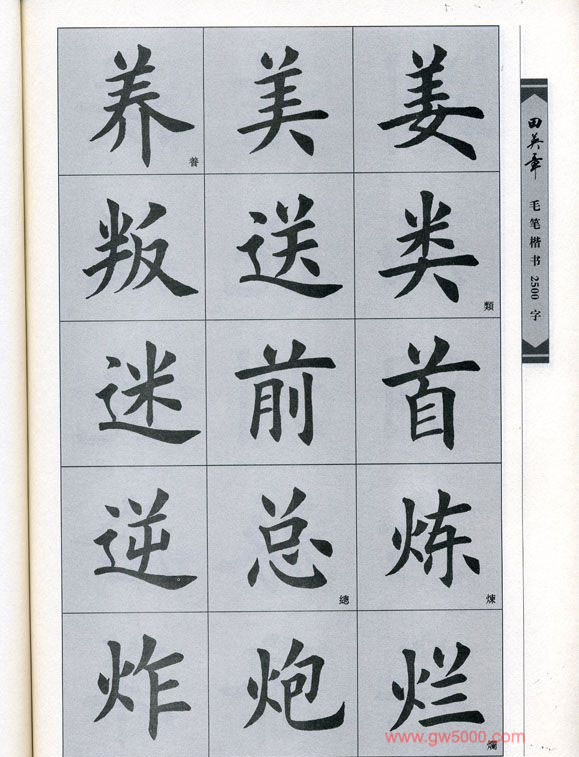 养 美 姜
養
叛 送 类
類
迷 前 首
逆 总 炼
總 煉
炸 炮 烂
爛
田英章
毛笔楷书2500字
www.gw5000.com